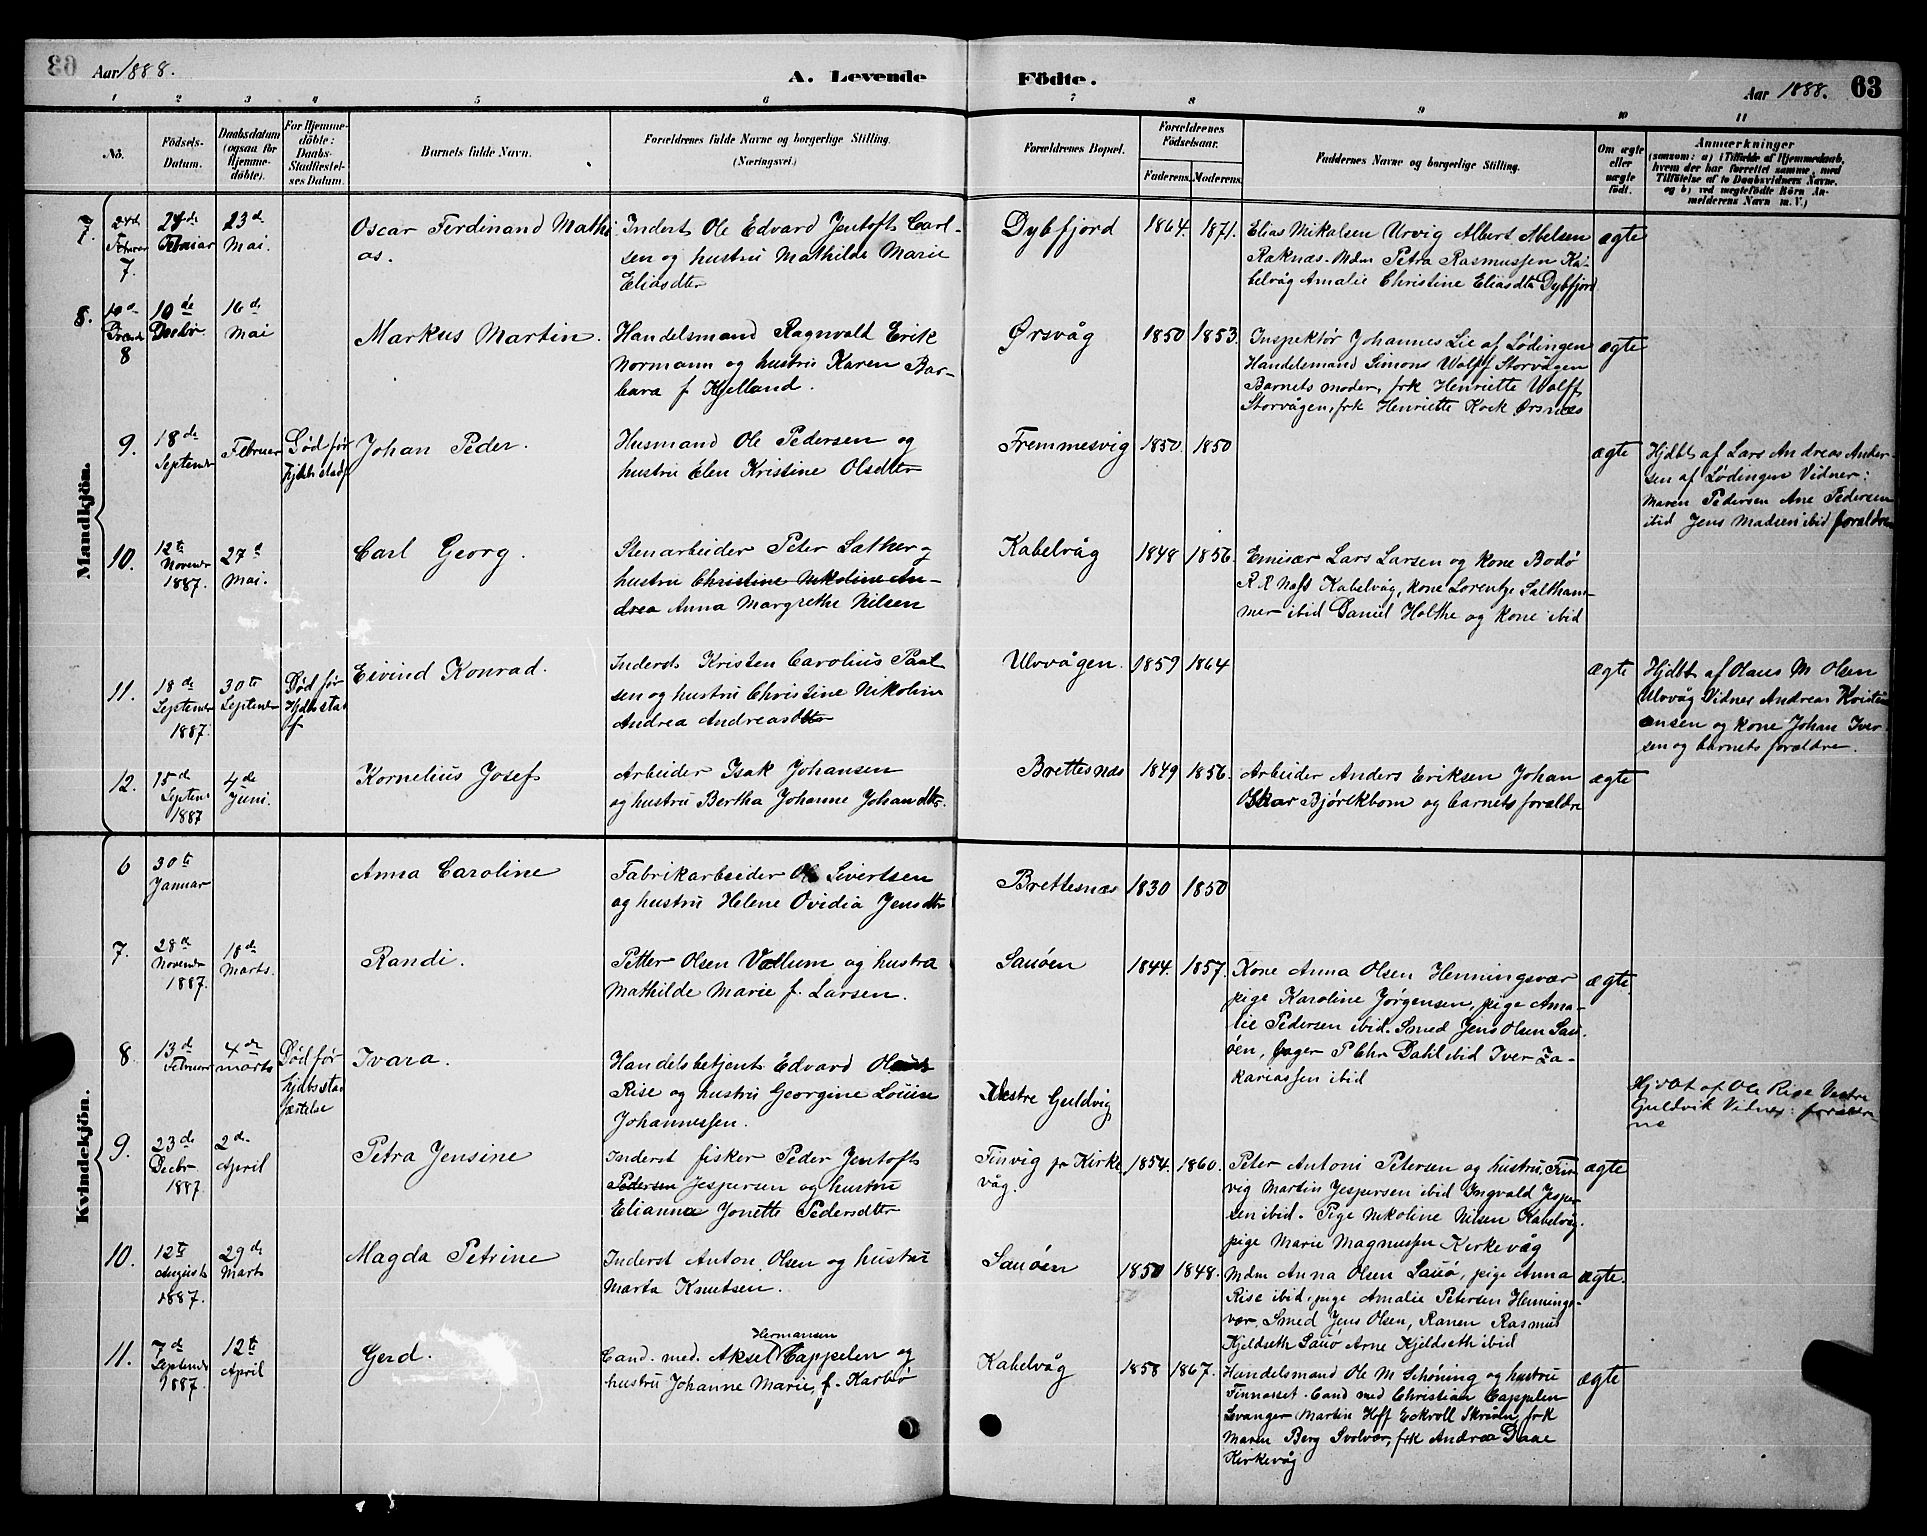 Aar 1888.
A. Levende Födte.
Aar 1888. 63
1 2 3 4 5 6 7 8 9 10 11
No.
Födsels-Datum.
Daabsdatum (ogsaa for Hjemmedöbte).
For Hjemmedöbte: Daabs-Stadfæstelses Datum.
Barnets fulde Navn.
Forældrenes fulde Navne og borgerlige Stilling.
(Næringsvei.)
Forældrenes Bopæl.
Forældrenes Födselsaar.
Faderens. Moderens.
Faddernes Navne og borgerlige Stilling.
Om ægte eller uægte födt.
Anmærkninger
(saasom: a) i Tilfælde af Hjemmedaab, hvem der har forrettet samme, med Tilföielse af to Daabsvidners Navne, og b) ved uegtefödte Börn Anmelderens Navn m. V.)
Mandkjön.
7. 24de Februar 23de Mai.
Oscar Ferdinand Mathias.
Inderst Ole Edvard Jentoft Carl-
sen og hustru Mathilde Marie
Eliasdtr
Dybfjord 1864. 1871.
Elias Mikalsen Urvig Albert Abelsen
Raknæs. Mdm Petra Rasmussen Ka-
belvåg Amalie Christine Eliasdtr Dybfjord
ægte
8. 10de Decbr 16de Mai
Markus Martin.
Handelsmand Ragnvald Erik
Normann og hustru Karen Bar-
bara f Kjelland.
Ørsvåg 1850 1853.
Inspektør Johannes Lie af Lødingen
Handelsmand Simons Wolff Storvågen
Barnets moder, frk Henriette Wolff
Storvågen, frk Henriette Kock Ørsnæs
ægte
9. 18de September Februar Død før
Johan Peder.
Husmand Ole Pedersen og
hustru Elen Kristine Olsdtr
Fremmesvig 1850. 1850
ægte
Hjdbt af Lars Andreas Ander-
sen af Lødingen Vidner:
Maren Pedersen Ane Pedersen
ibid Jens Madsen ibid forældre
10. 12te Novembr 1887. 27d Mai.
Carl Georg.
Stenarbeider Peter Sæther og
hustru Christine Nikoline An-
drea Anna Margrethe Nilsen
Kabelvåg 1848 1856.
Emisær Lars Larsen og kone Bodø
R. R Næss Kabelvåg, kone Lorentze Saltham-
mer ibid Daniel Holthe og kone ibid
11. 18de September 1887. 30te September Død før
Eivind Konrad.
Inderst Kristen Carolius Paul-
sen og hustru Christine Nikoline
Andrea Andreasdtr
Ulvvågen. 1859 1864
ægte
Hjdbt af Olaus M Olsen
Ulvvåg Vidner Andreas Kristi-
ansen og kone Johan Iver-
sen og barnets forældre.
12. 15de Septemb 1887 4de Juni.
Kornelius Josef
Arbeider Isak Johansen
og hustru Bertha Johanne Johandtr.
Brettesnæs 1849 1856.
Arbeider Anders Eriksen Johan
Oskar Bjørckbom og barnets forældre
ægte
Kvindekjön.
6 30te Januar
Anna Caroline
Fabrikarbeider Ole Sivertsen
og hustru Helene Ovidia Jensdtr
Brettesnæs 1830 1850
7. 28de Novembr 1887. 18de Marts.
Randi.
Petter Olsen Vollum og hustru
Mathilde Marie f. Larsen.
Sauøen 1844. 1857.
Kone Anna Olsen Henningsvær
pige Karoline Jørgensen, pige Ama-
lie Pedersen ibid. Smed Jens Olsen Sau-
øen, P Chr Dahl ibid Iver Za-
kariassen ibid
ægte.
8. 13de Februar 4de marts Død før
Hjdbs stad
fæstelse
Ivara.
Handelsbetjent Edvard
Rise og hustru Georgine Louise
Johannessen.
Vestre Guldvig
Hjdbt af Ole Rise Vestre
Guldvik Vidner: foræld-
rne
9. 23de Decbr. 1887. 2de April
Petra Jensine
Inderst fisker Peder Jentoft
Pedersen Jespersen og hustru
Elianna Jonette Pedersdtr
Finvig pr Kirke-
våg. 1854. 1860.
Peter Antoni Petersen og hustru, Fin-
vig Martin Jespersen ibid Ingvald Jesper-
sen ibid. Pige Nikoline Nilsen Kabelvåg.
pige Marie Magnussen Kirkevåg
ægte
10. 12te August 1887. 29de Marts
Magda Petrine
Inderst Anton Olsen og hustru
Marta Knutsen.
Sauøen 1850 1848.
Mdm Anna Olsen Sauø, pige Anna
Rise ibid, pige Amalie Petersen Hennings-
vær, Smed Jens Olsen, Ranen Rasmus
Kjeldseth Sauø Arne Kjeldseth ibid
ægte.
11. 7de September 1887. 12te April
Gerd.
Hermansen
Cand. med. Aksel Cappelen og
hustru Johanne Marie, f. Karbø
Kabelvåg 1858 1867.
Handelsmand Ole M Schøning og hustru
Finnæset. Cand med Christian Cappelen
Levanger, Martin Hoff Eckroll Skråen, frk
Maren Berg Svolvær, frk Andrea Daae
Kirkevåg
ægte